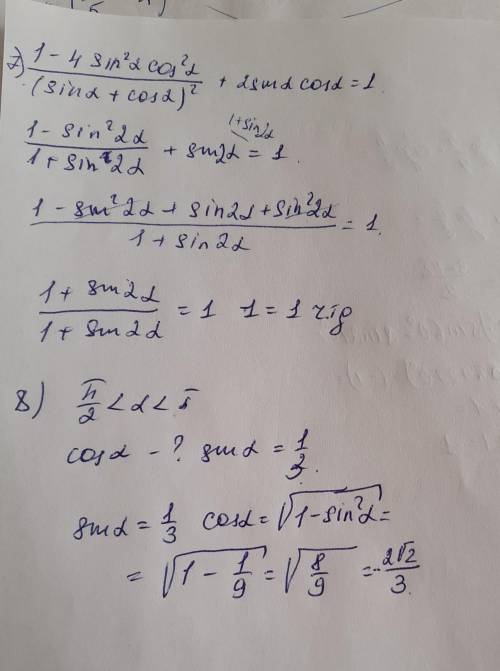 7) (1 - 4 sin²α cos²α)/(sinα + cosα)² + 2sinα cosα = 1.
(1 - sin²2α)/(1 + sin2α) + sin2α = 1. 1+sin2α
(1 - sin²2α + sin2α + sin²2α)/(1 + sin2α) = 1.
(1 + sin2α)/(1 + sin2α) = 1 1 = 1
8) π/2 < α < π
cosα - ? sinα = 1/3.
sinα = 1/3 cosα = √(1-sin²α) =
= √(1 - 1/9) = √(8/9) = -2√2/3.